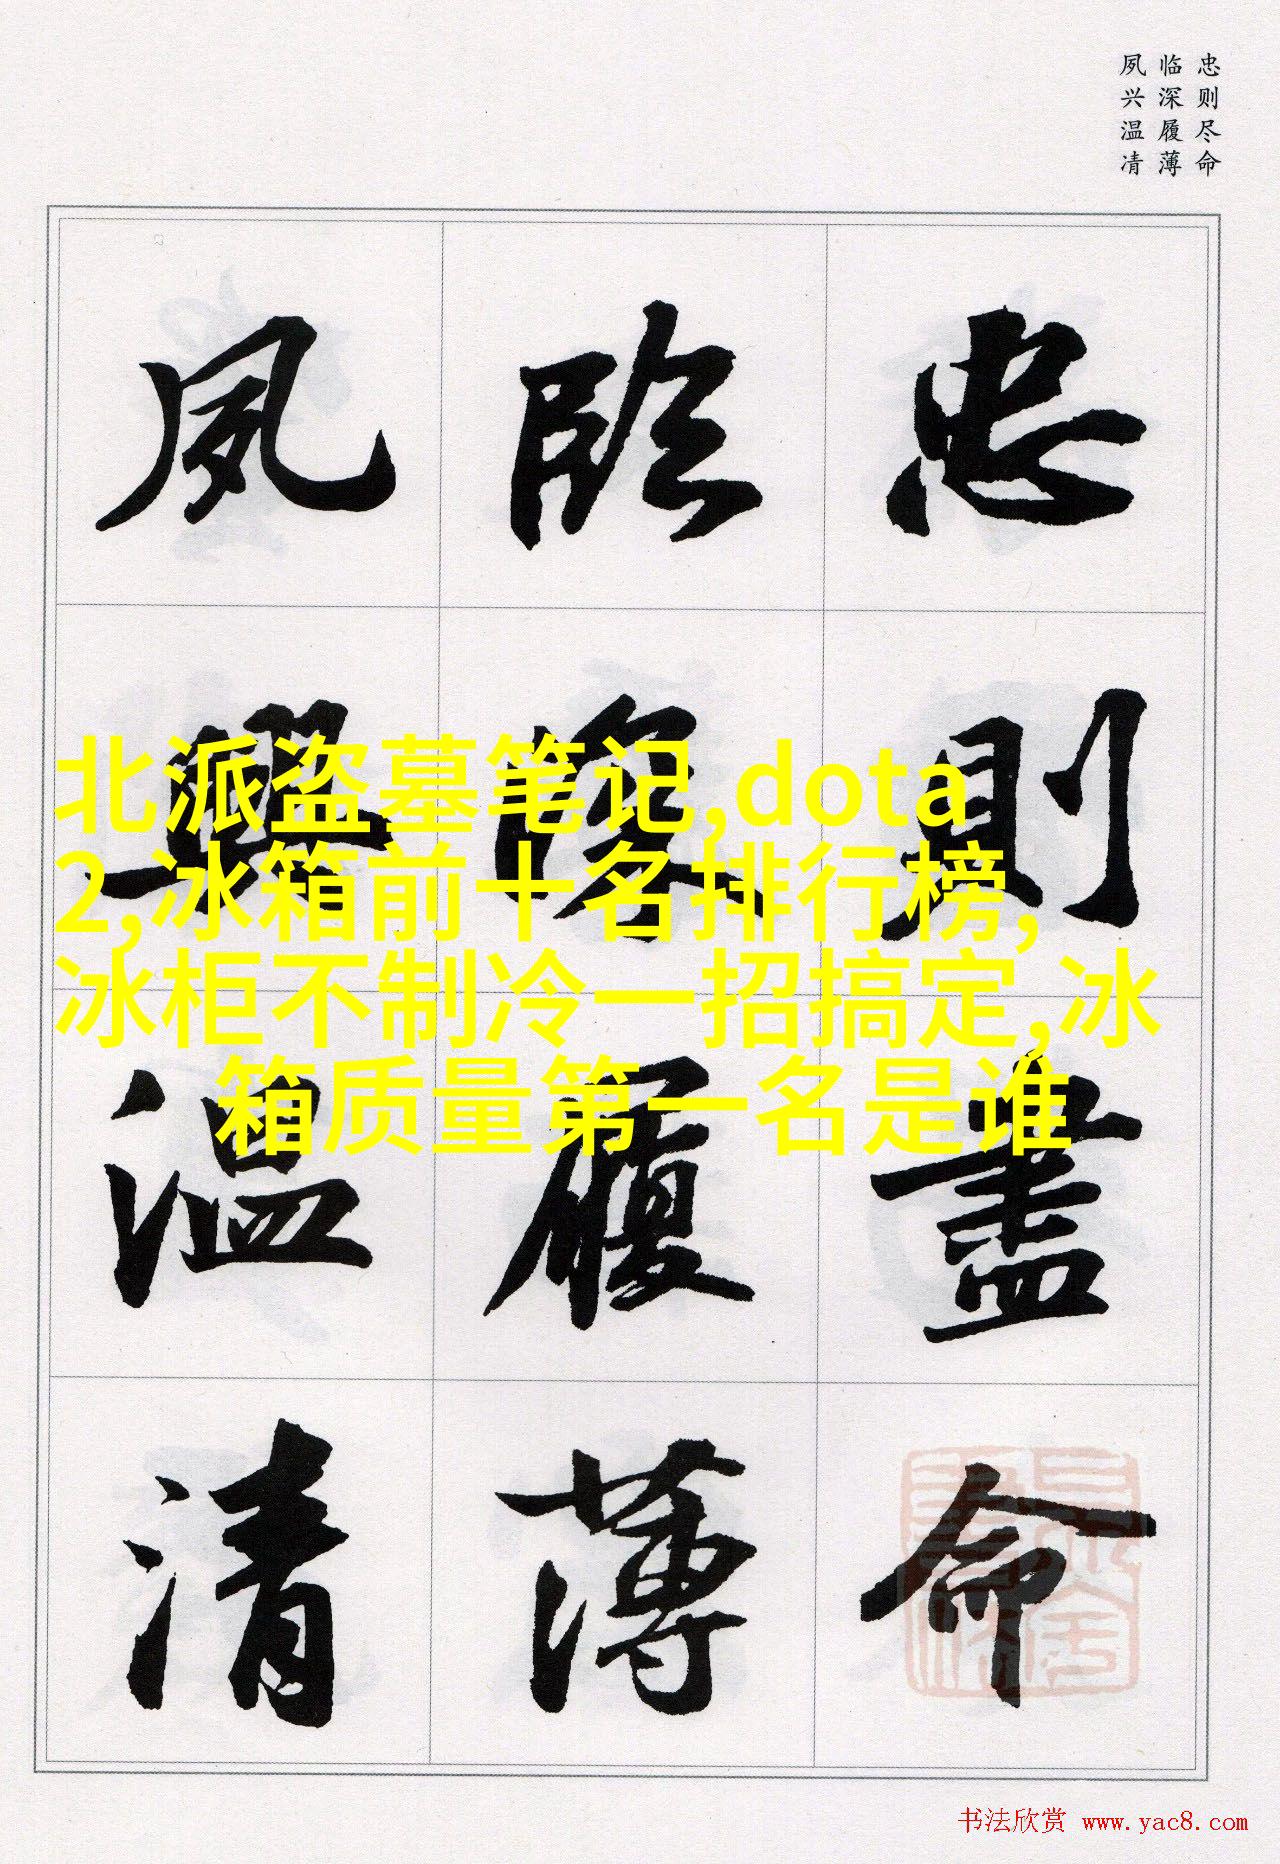 忠则尽命
临深履薄
夙兴温凊
忠則盡命
臨深履薄
夙興温清
北派盗墓笔记,dota
2,冰箱前十名排行榜,
冰柜不制冷一招搞定,冰
箱质量第一名是谁
书法欣赏 www.yac8.com